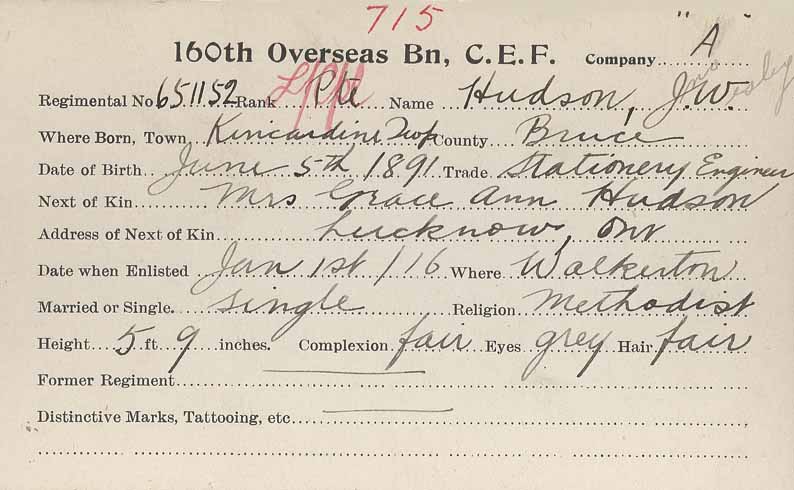 715
160th Overseas Bn, C.E.F. Company "A"
Regimental No 651152 Rank Pte Name Hudson, J.W.
Where Born, Town Kincardine Twp County Bruce
Date of Birth June 5th 1891 Trade Stationery Engineer
Next of Kin Mrs Grace Ann Hudson
Address of Next of Kin Lucknow, Ont
Date when Enlisted Jan 1st/16 Where Walkerton
Married or Single. Single Religion Methodist
Height 5 ft 9 inches. Complexion fair Eyes grey Hair fair
Former Regiment
Distinctive Marks, Tattooing, etc